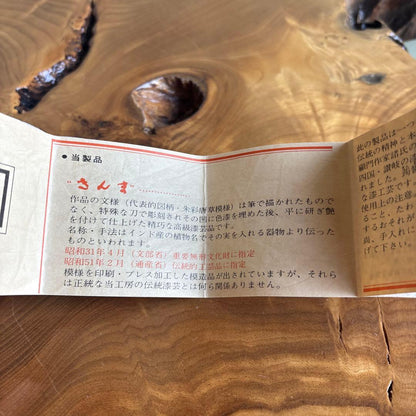 ● 当製品
"きんま"
作品の文様（代表的図柄・朱彩唐草模様）は筆で描かれたもので
なく、特殊な刀で彫刻されその凹に色漆を埋めた後、平に研ぎ艶
を付けて仕上げた精巧な高級漆芸品です。
名称・手法はインド産の植物名でその実を入れる器物より伝った
ものといわれます。
昭和31年4月（文部省）重要無形文化財に指定
昭和51年2月（通産省）伝統的工芸品に指定
模様を印刷・プレス加工した模造品が出されていますが、それら
は正統な当工房の伝統漆芸とは何ら関係ありません。
此の製品は一つ
伝統の精神と
顧問作家諸氏の
四国・讃岐の
れました。
な漆工芸です。
使用上の注意
ること、たわ
するおそれ
尚、手入れに
げて下さい